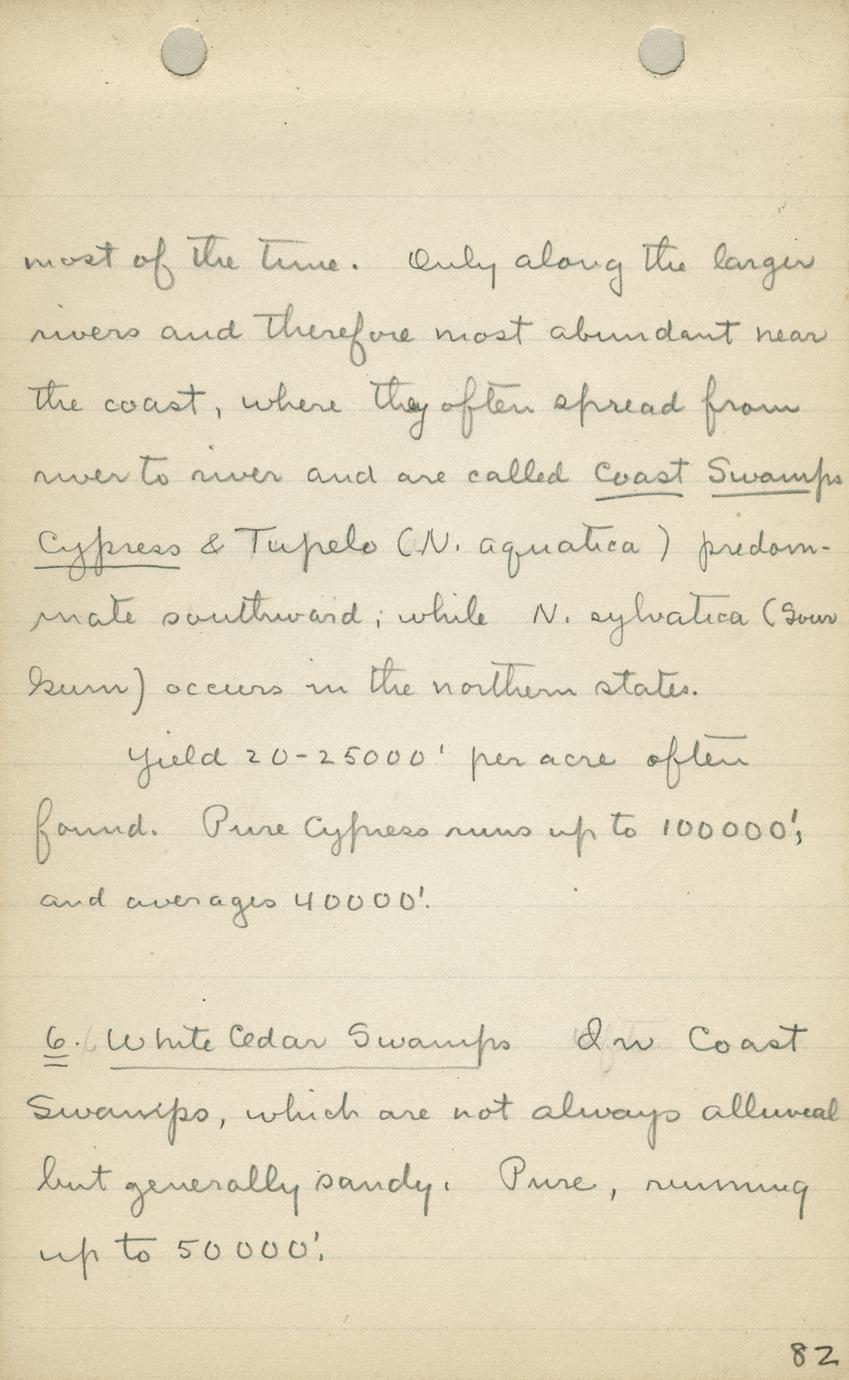 most of the time. Only along the larger
rivers and therefore most abundant near
the coast, where they often spread from
river to river and are called Coast Swamps
Cypress & Tupelo (N. aquatica) predom-
inate southward; while N. sylvatica (Sour
Gum) occurs in the northern states.
Yield 20-25000' per acre often
found. Pure Cypress runs up to 100000';
and averages 40000'.
6. White Cedar Swamps In Coast
Swamps, which are not always alluvial
but generally sandy. Pure, running
up to 50000'.
82